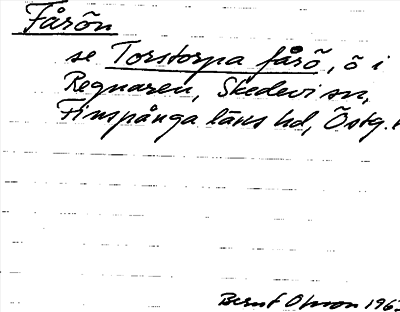 Fårön
se Torstorpa fårö, ö i
Regnaren, Skedevi sn,
Finspånga läns hd, Östg.
Bernt Olsson 196